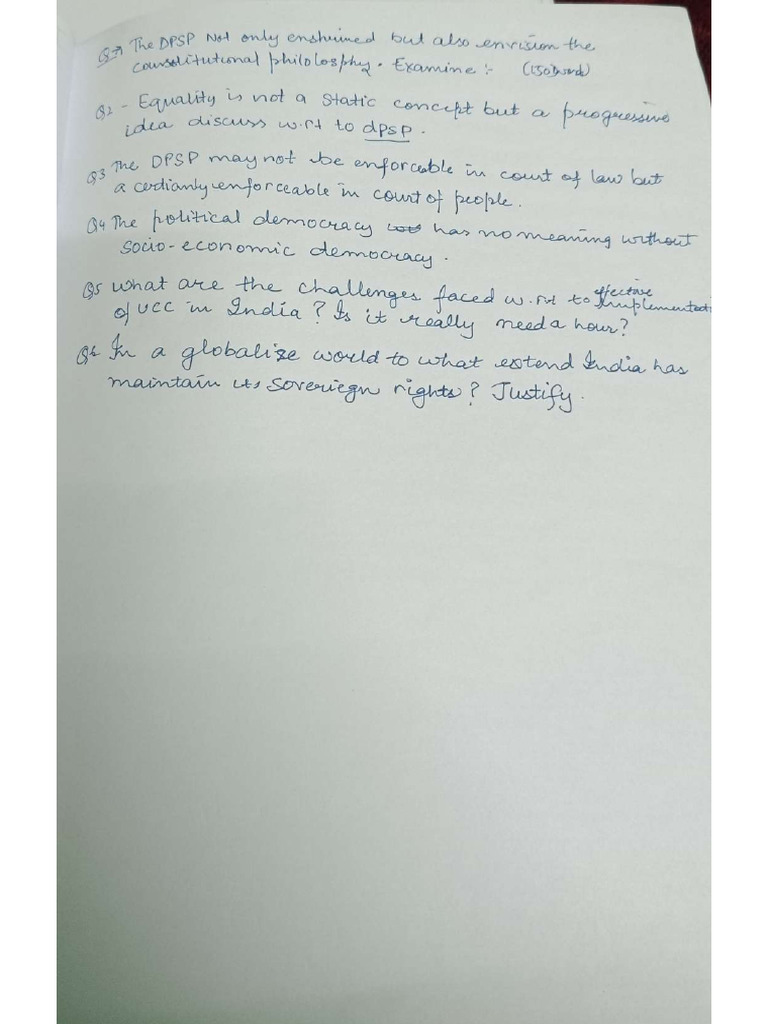 Q1 The DPSP Not only enshrined but also envision the
counstitutional philolosphy. Examine :- (150 word)
Q2 - Equality is not a static concept but a progressive
idea discuss w.r.t to dpsp.
Q3 The DPSP may not be enforceable in court of law but
a cerdianly enforceable in court of people.
Q4 The political democracy has no meaning without
socio-economic democracy.
Q5 what are the challenges faced w.r.t to effective implementation
of UCC in India? Is it really need a hour?
Q6 In a globalize world to what extend India has
maintain its soveriegn rights? Justify.